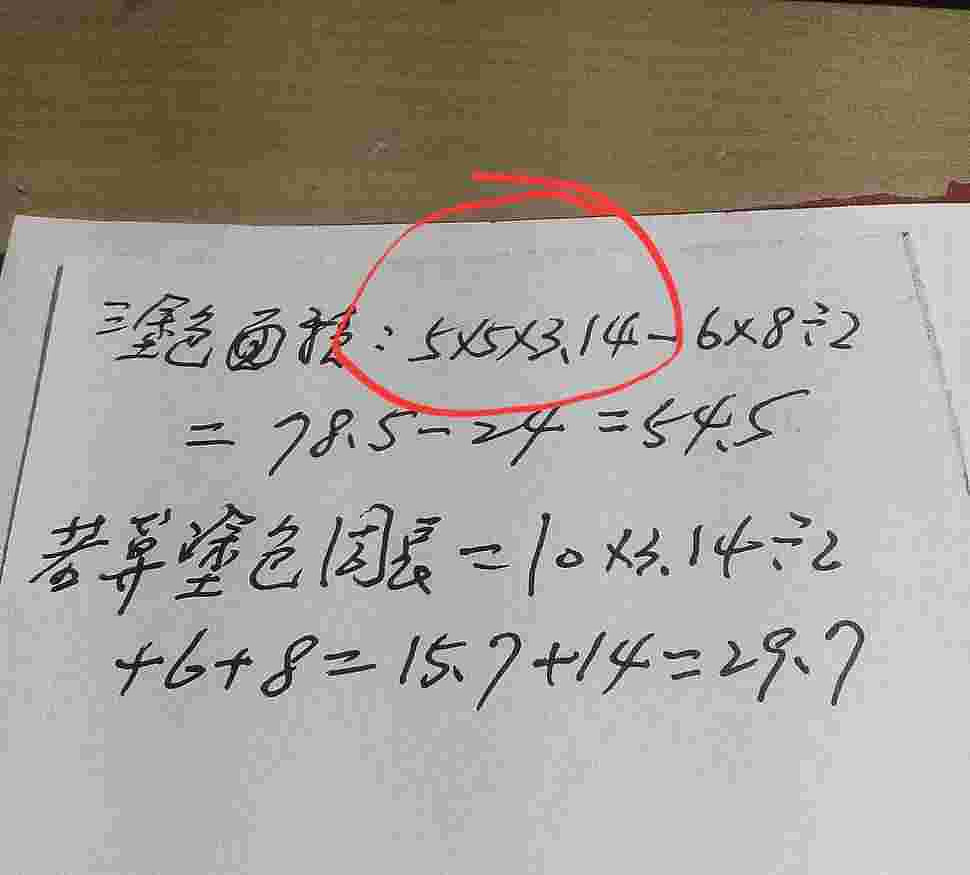 ∴塗色面積：5×5×3.14-6×8÷2
=78.5-24=54.5
若算塗色周長=10×3.14÷2
+6+8=15.7+14=29.7